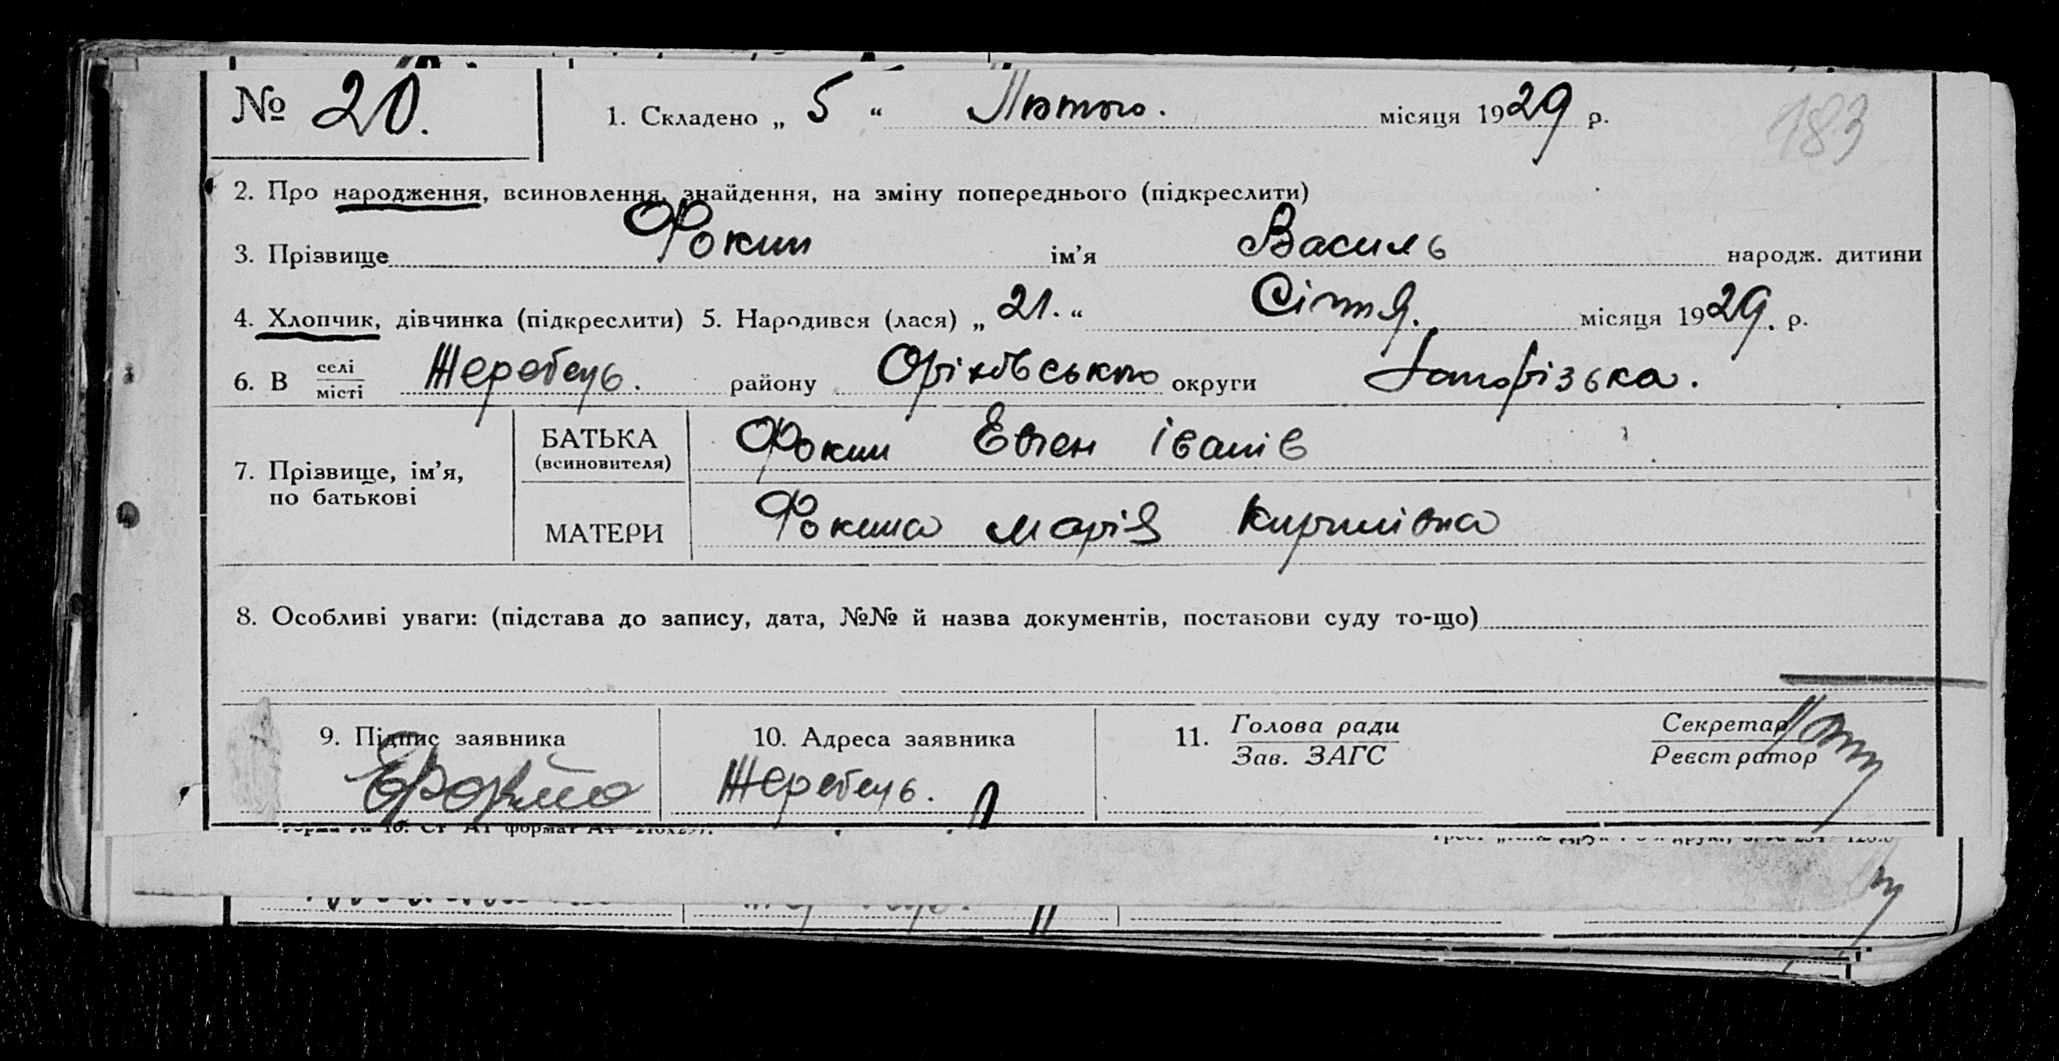 № 20. 1. Складено „ 5 “ Лютого. місяця 1929 р. 183
2. Про народження, всиновлення, знайдення, на зміну попереднього (підкреслити)
3. Прізвище Фокин ім’я Василь народж. дитини
4. Хлопчик, дівчинка (підкреслити) 5. Народився (лася) „ 21. “ Січня. місяця 1929. р.
6. В селі Жеребець. району Оріхівського округи Запорізька.
місті
БАТЬКА Фокин Евген Іванів
(всиновителя)
7. Прізвище, ім’я,
по батькові
МАТЕРИ Фокина Марія Кирилівна
8. Особливі уваги: (підстава до запису, дата, №№ й назва документів, постанови суду то-що)
9. Підпис заявника 10. Адреса заявника 11. Голова ради Секретар
Зав. ЗАГС Реєстратор
Жеребець.